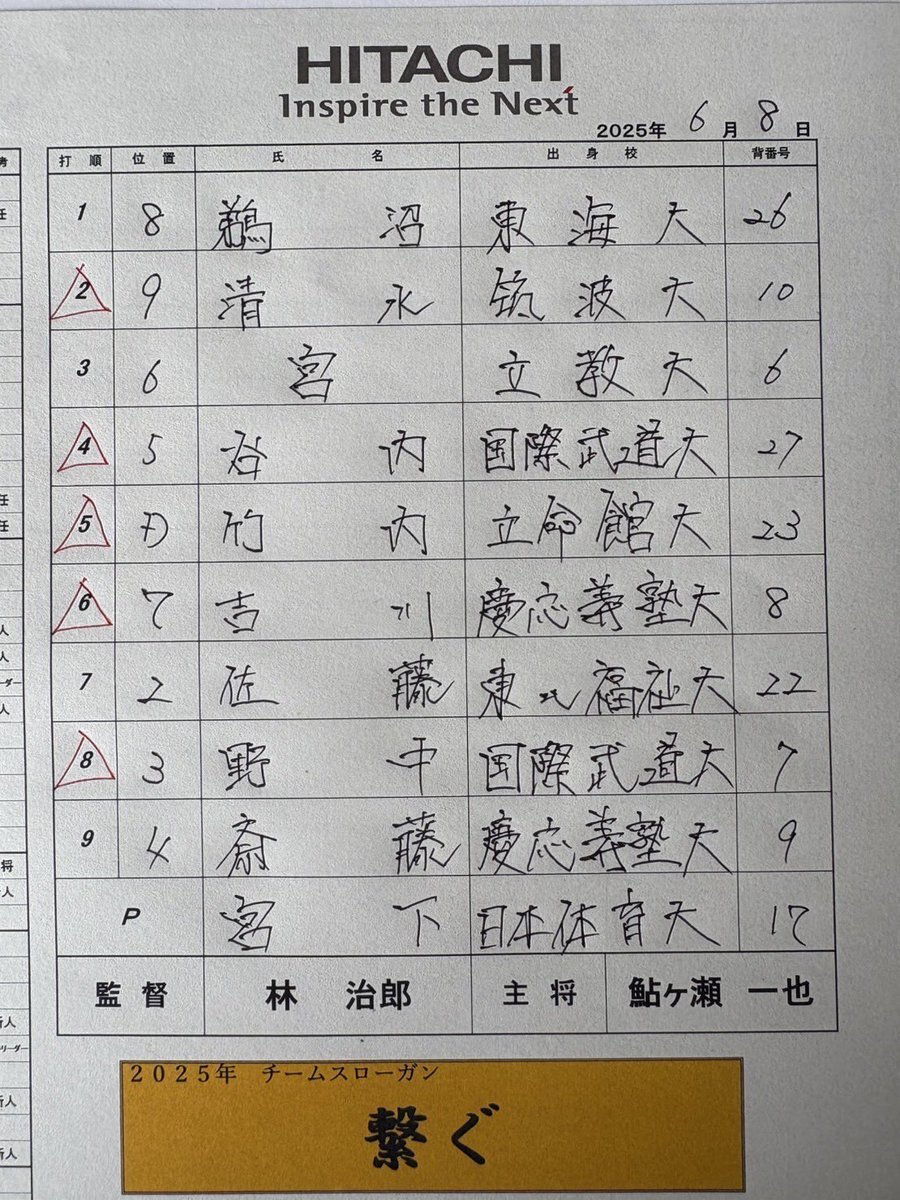 HITACHI
Inspire the Next
2025年 6月 8日
打順 位置 氏名 出身校 背番号
1 8 鵜沼 東海大 26
2 9 清水 筑波大 10
3 6 宮 立教大 6
4 5 谷内 国際武道大 27
5 D 竹内 立命館大 23
6 7 吉川 慶応義塾大 8
7 2 佐藤 東北福祉大 22
8 3 野中 国際武道大 7
9 4 斎藤 慶応義塾大 9
P 宮下 日本体育大 17
監督 林 治郎 主将 鮎ヶ瀬 一也
2025年 チームスローガン
繋ぐ